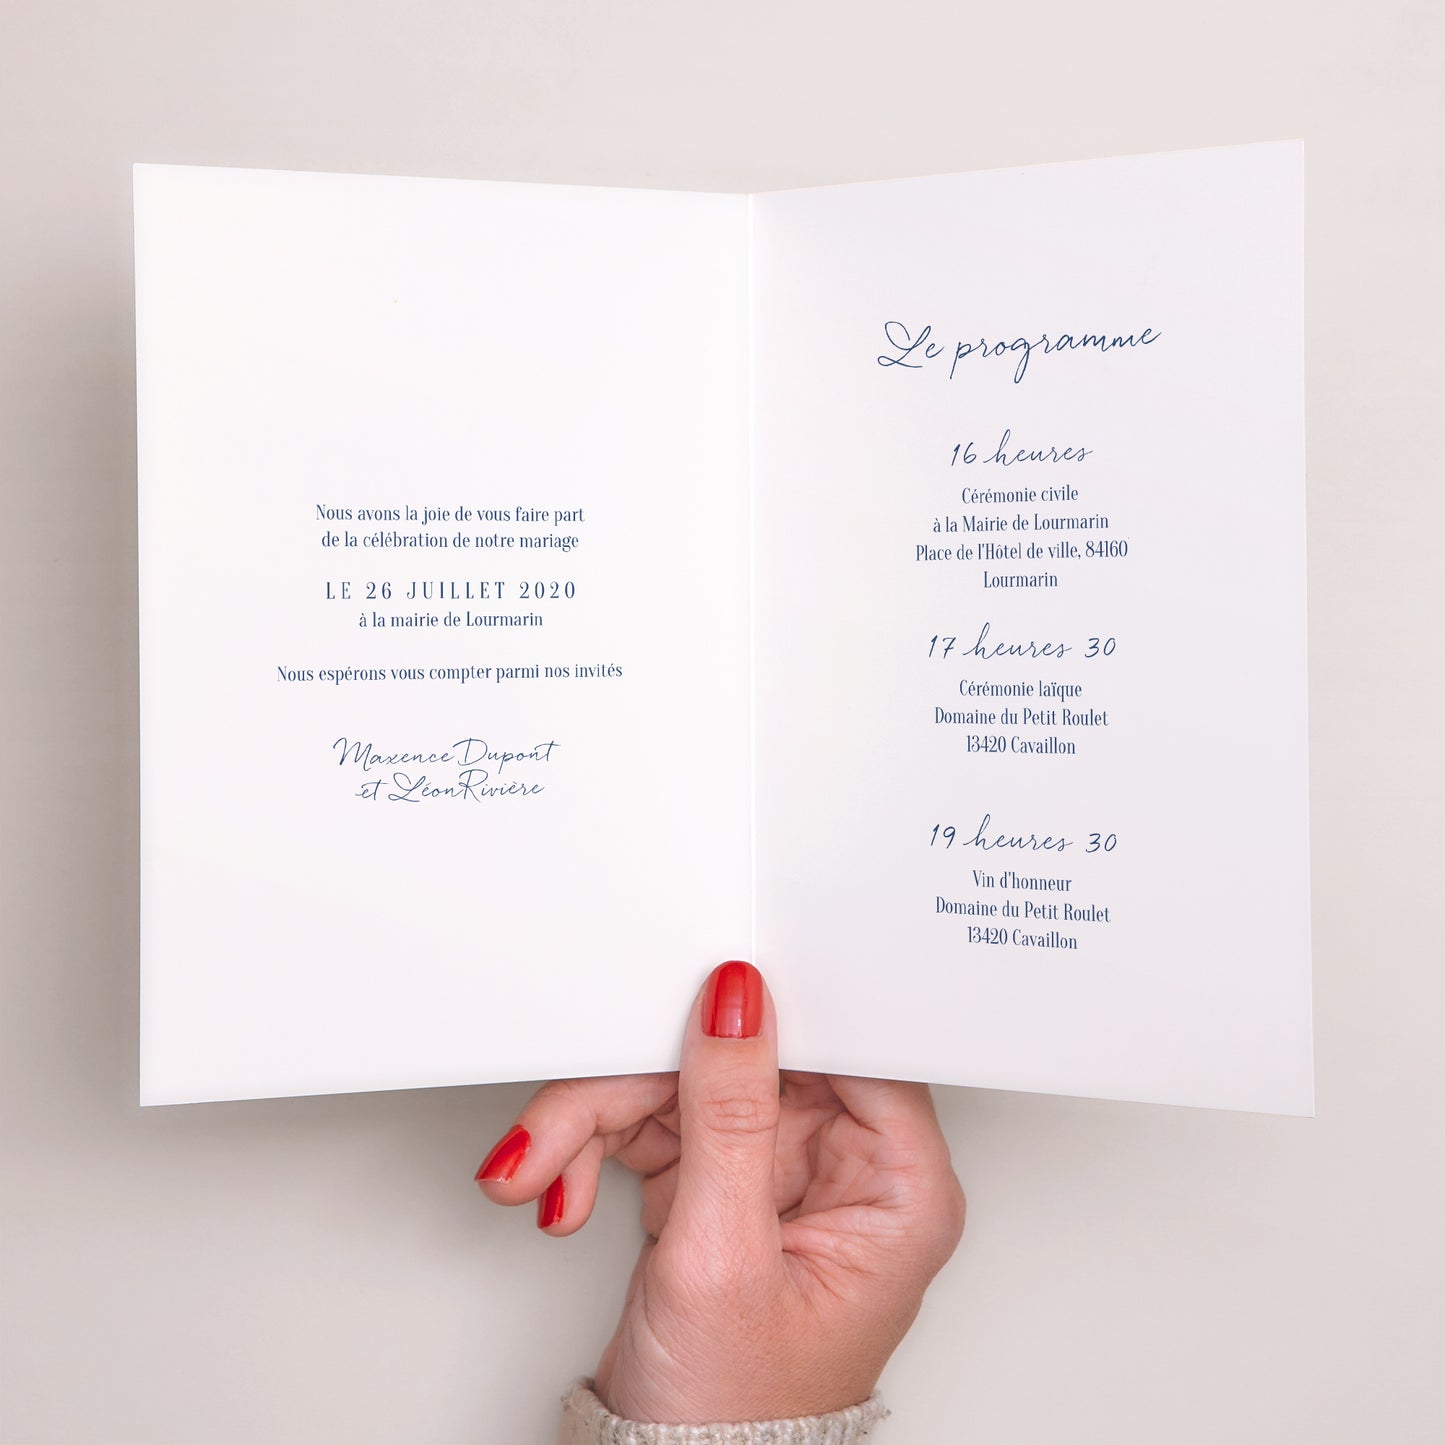 Nous avons la joie de vous faire part
de la célébration de notre mariage
LE 26 JUILLET 2020
à la mairie de Lourmarin
Nous espérons vous compter parmi nos invités
Maxence Dupont
et Léon Rivière
Le programme
16 heures
Cérémonie civile
à la Mairie de Lourmarin
Place de l'Hôtel de ville, 84160
Lourmarin
17 heures 30
Cérémonie laïque
Domaine du Petit Roulet
13420 Cavaillon
19 heures 30
Vin d'honneur
Domaine du Petit Roulet
13420 Cavaillon